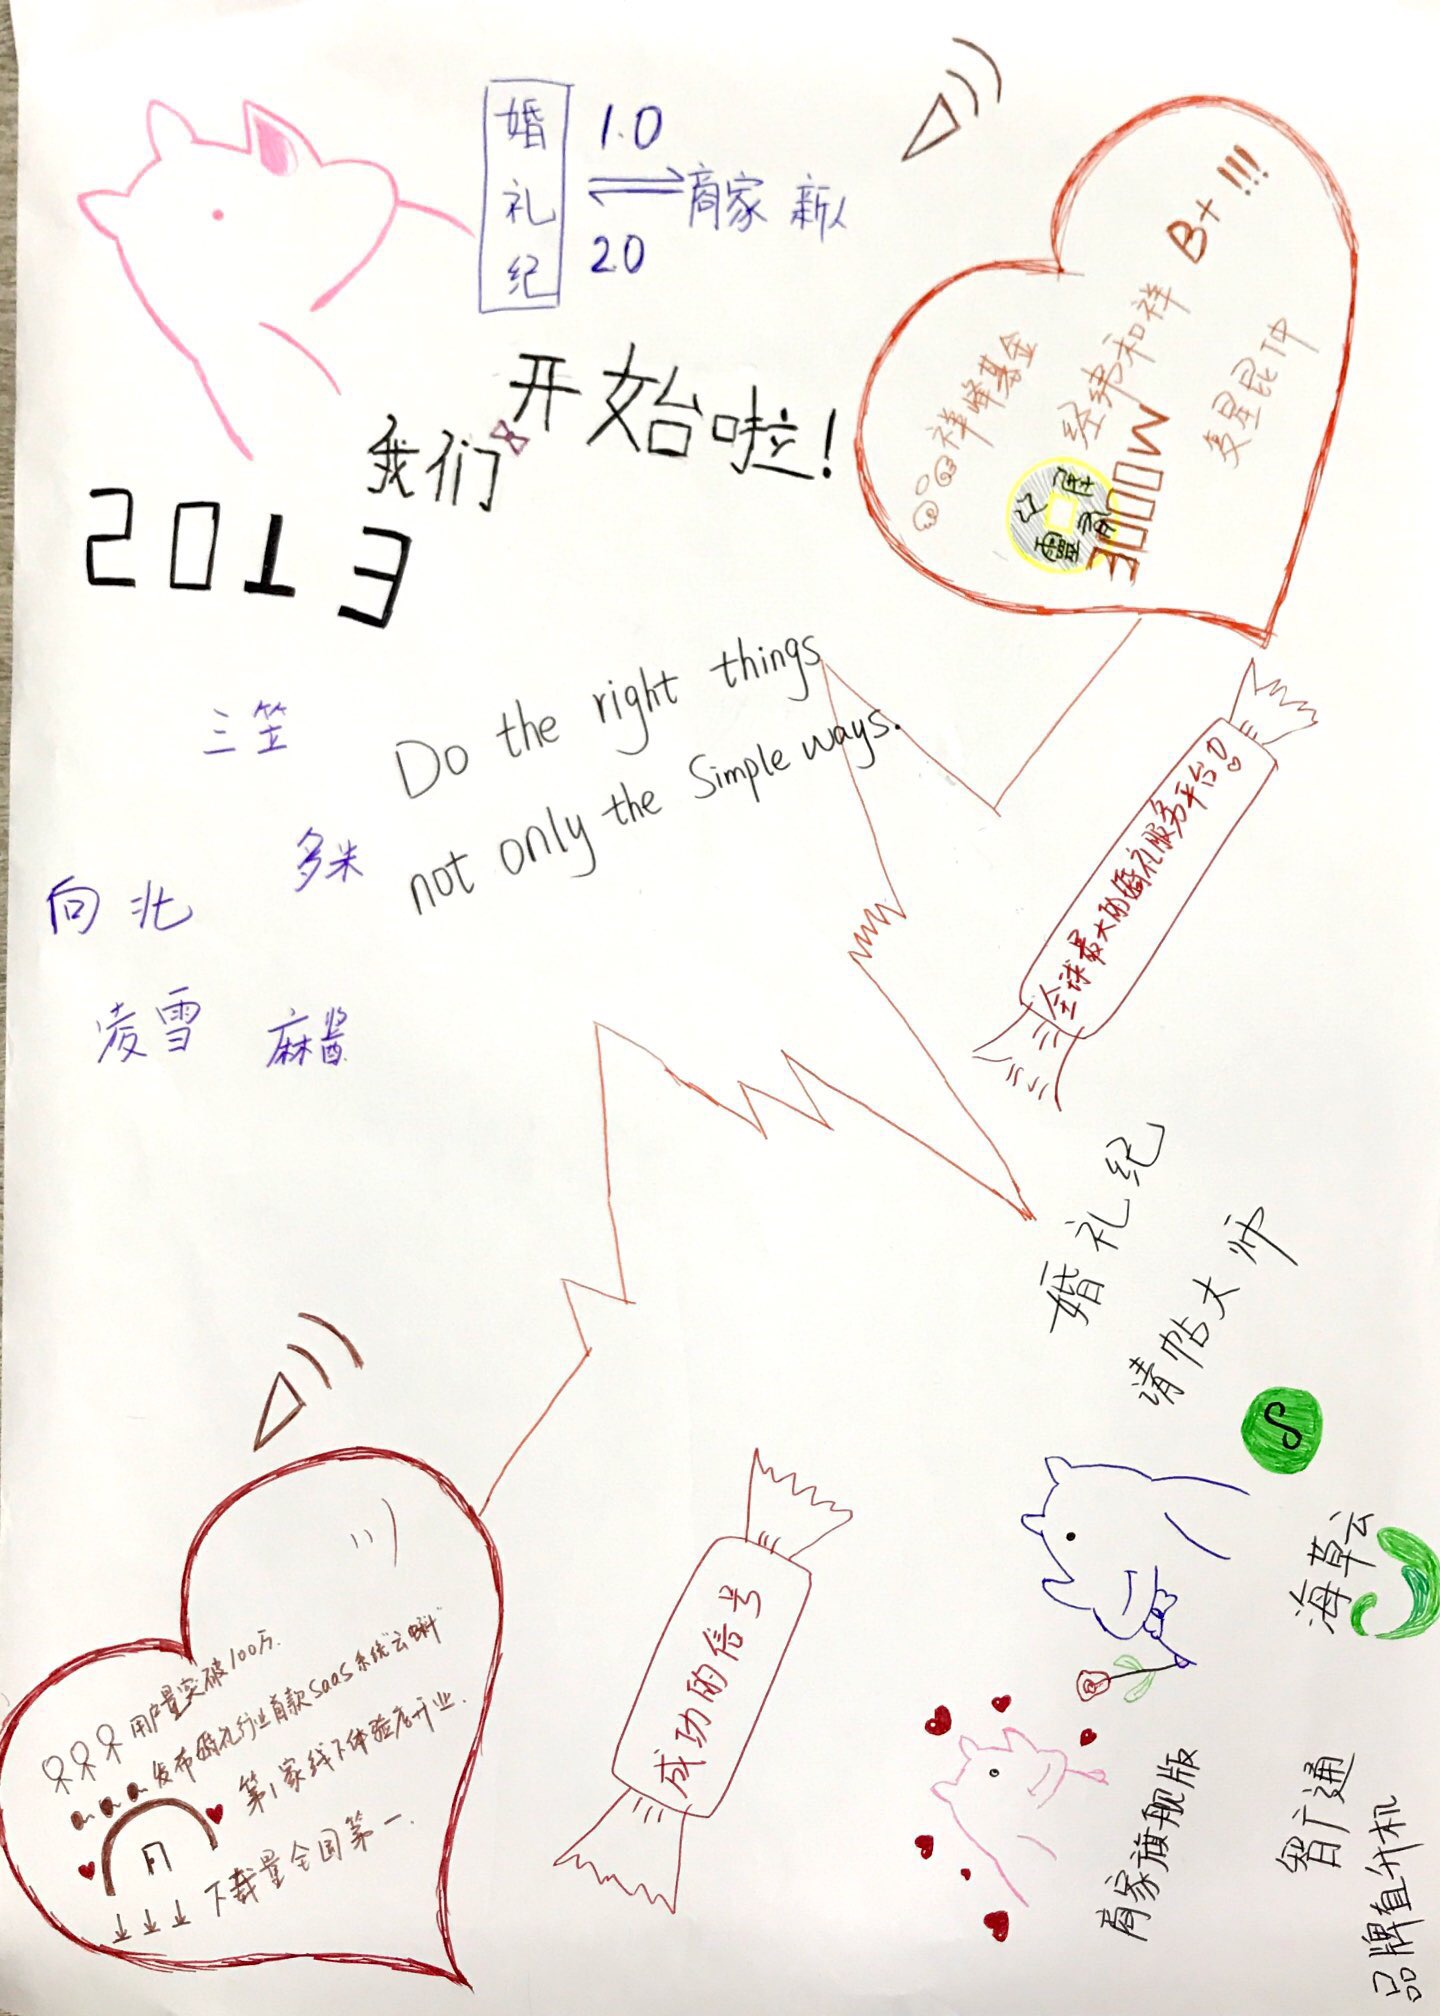 婚礼纪
1.0
商家 新人
2.0
我们开始啦!
2013
B+ !!!!
祥峰基金
经纬和祥
复星昆仲
3000W
Do the right things
not only the Simple ways.
三笠
多米
向北
凌雪
麻酱
全球最大的婚礼服务平台!
婚礼纪
请帖大师
海草云
智广通
品牌直升机
商家旗舰版
成功的信号
用户量突破100万.
发布婚礼行业首款SaaS系统"云蝌"
第1家线下体验店开业.
下载量全国第一.